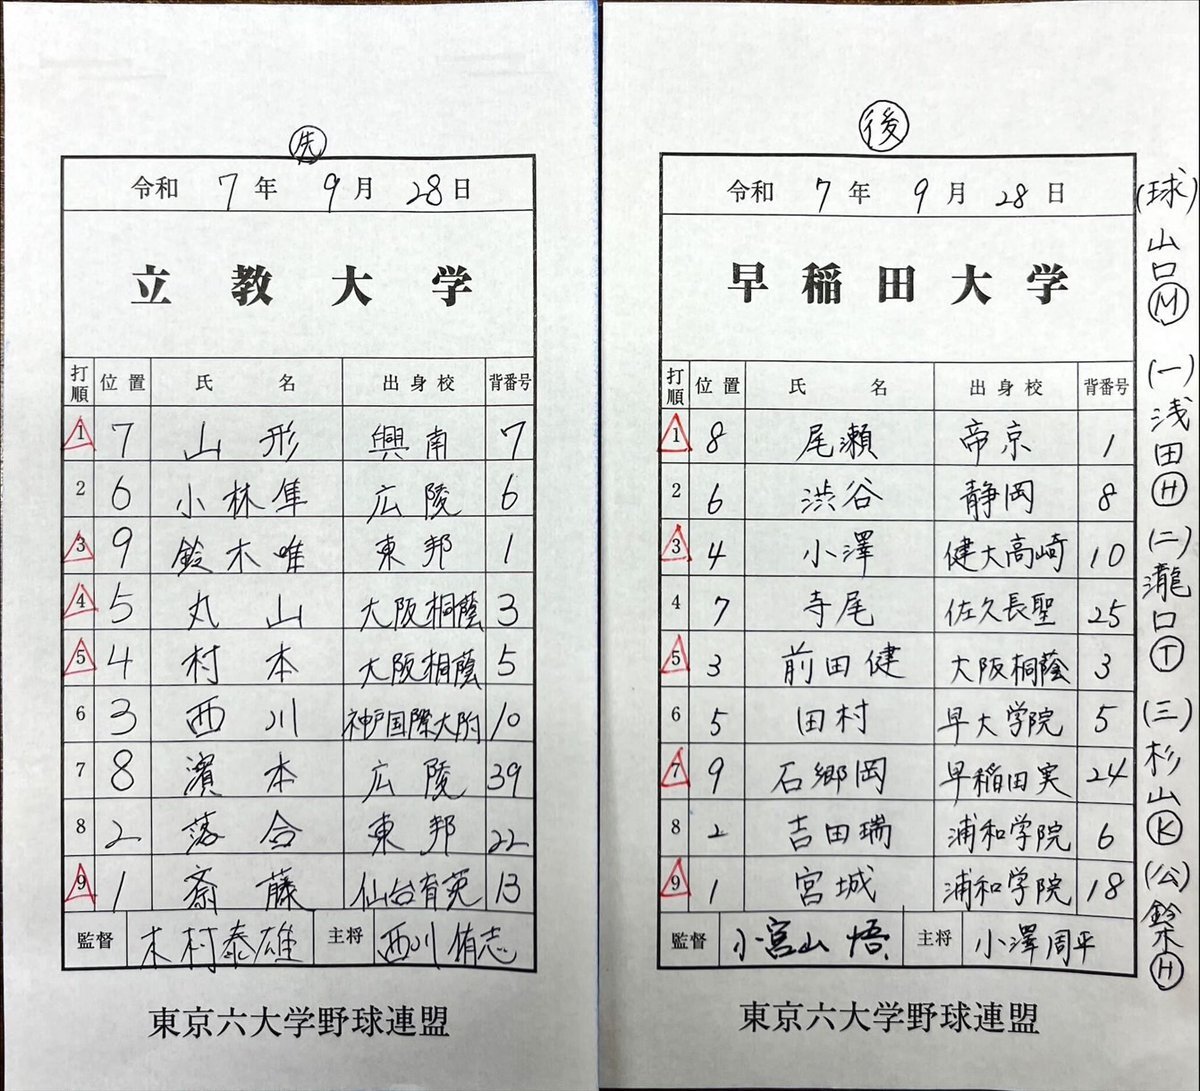 先
令和 7年 9月 28日
立教大学
打順 位置 氏名 出身校 背番号
1 7 山形 興南 7
2 6 小林隼 広陵 6
3 9 鈴木唯 東邦 1
4 5 丸山 大阪桐蔭 3
5 4 村本 大阪桐蔭 5
6 3 西川 神戸国際大附 10
7 8 濱本 広陵 39
8 2 落合 東邦 22
9 1 斎藤 仙台育英 13
監督 木村泰雄 主将 西川侑志
東京六大学野球連盟
後
令和 7年 9月 28日
早稲田大学
打順 位置 氏名 出身校 背番号
1 8 尾瀬 帝京 1
2 6 渋谷 静岡 8
3 4 小澤 健大高崎 10
4 7 寺尾 佐久長聖 25
5 3 前田健 大阪桐蔭 3
6 5 田村 早大学院 5
7 9 石郷岡 早稲田実 24
8 2 吉田瑞 浦和学院 6
9 1 宮城 浦和学院 18
監督 小宮山悟 主将 小澤周平
東京六大学野球連盟
(球)山口Ⓜ (一)浅田Ⓗ (二)瀧口Ⓣ (三)杉山Ⓚ (公)鈴木Ⓗ